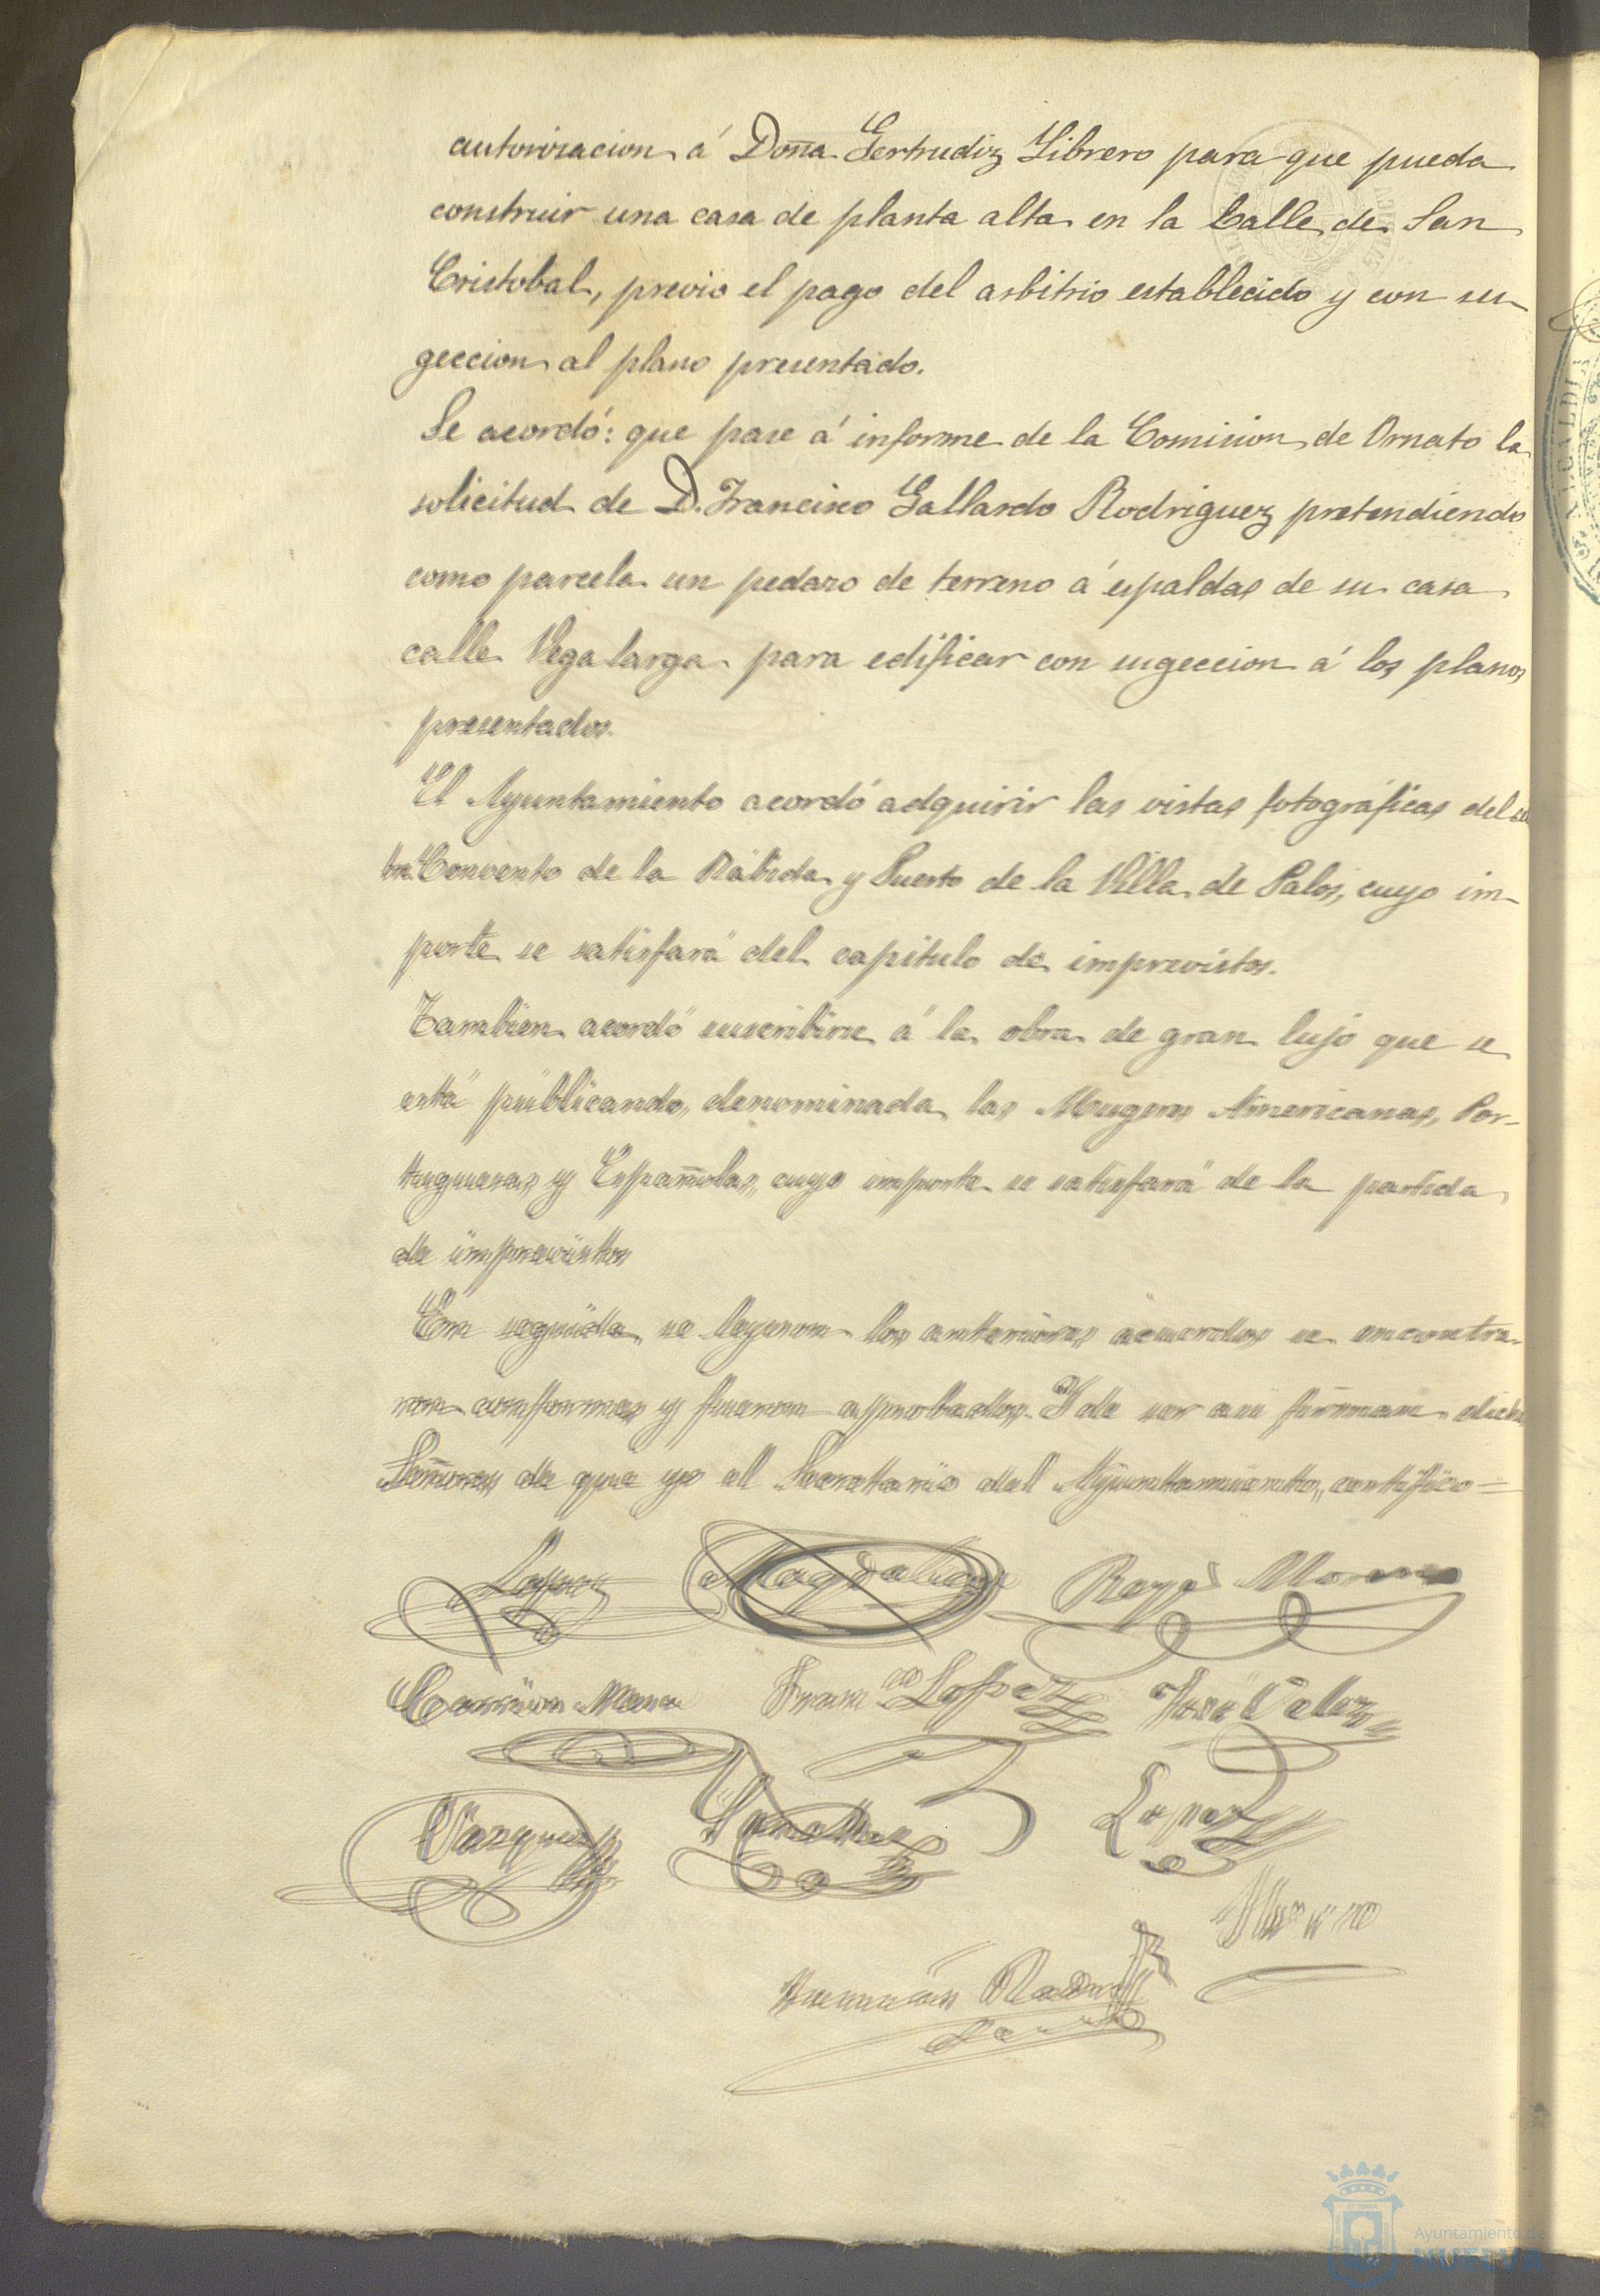 autorizacion á Doña Gertrudiz Librero para que pueda
construir una casa de planta alta en la Calle de San
Cristobal, previo el pago del arbitrio establecido y con su-
geccion al plano presentado.
Se acordó: que pase á informe de la Comision de Ornato la
solicitud de D. Francisco Gallardo Rodriguez pretendiendo
como parcela un pedazo de terreno á espaldas de su casa
calle Vega larga para edificar con sugeccion á los planos
presentados.
El Ayuntamiento acordó adquirir las vistas fotográficas del
Convento de la Rábida y Puerto de la Villa de Palos, cuyo im-
porte se satisfará del capitulo de imprevistos.
Tambien acordó suscribirse á la obra de gran lujo que se
está publicando, denominada las Mugeres Americanas, Por-
tuguesas y Españolas, cuyo importe se satisfará de la partida
de imprevistos
En seguida se leyeron los anteriores acuerdos se encontra-
ron conformes y fueron aprobados. Y de ser asi firman dichos
Señores de que yo el Secretario del Ayuntamiento, certifico=
Lopez
Rojas Moreno
Carrion Mena
Franco Lopez
José Velez
Vazquez
Lopez
Moreno
Ayuntamiento de
HUELVA